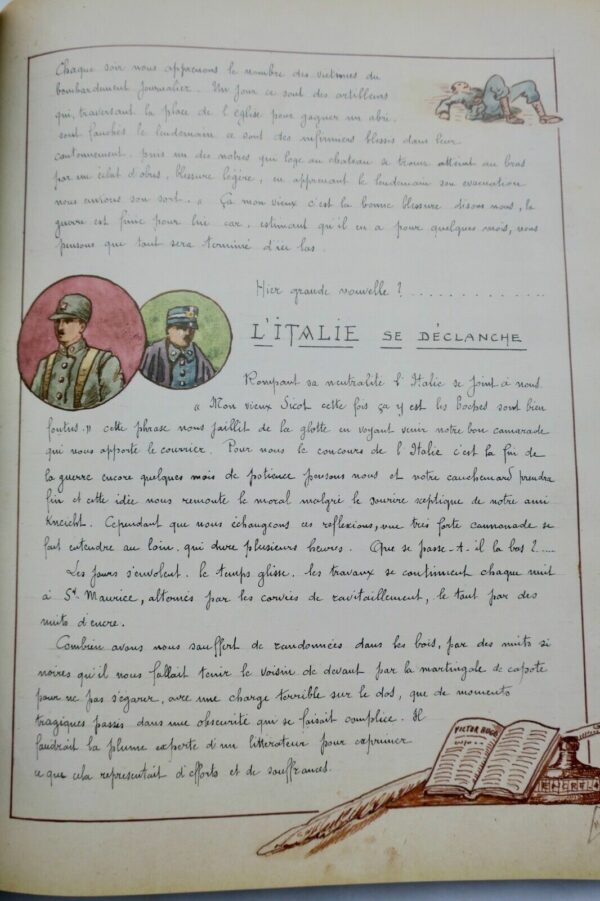 Chaque soir nous apprenons le nombre des victimes du
bombardement journalier. Un jour ce sont des artilleurs
qui, traversant la place de l'église pour gagner un abri
sont fauchés le lendemain ce sont des infirmiers blessés dans leur
cantonnement, puis un des notres qui loge au chateau se trouve attéint au bras
par un éclat d'obus, blessure légère, en apprenant le lendemain son évacuation
nous envions son sort. « Ça mon vieux c'est la bonne blessure disons nous, la
guerre est finie pour lui car, estimant qu'il en a pour quelques mois, nous
pensons que tout sera terminé d'ici las.
Hier grande nouvelle ? . . . . . . . . . . . . .
L'ITALIE SE DÉCLANCHE
Rompant sa neutralité l'Italie se joint à nous.
« Mon vieux Sicot cette fois ça y est les boches sont bien
foutus » cette phrase nous jaillit de la glotte en voyant venir notre bon camarade
qui nous apporte le courrier. Pour nous le concours de l'Italie c'est la fin de
la guerre encore quelques mois de patience pensons nous et notre cauchemard prendra
fin et cette idée nous remonte le moral malgré le sourire septique de notre ami
Kneicht. Cependant que nous échangeons ces réflexions, une très forte cannonade se
fait entendre au loin, qui dure plusieurs heures. Que se passe-t-il la bas ?....
Les jours s'envolent, le temps glisse, les travaux se continuent chaque nuit
à St Maurice, altérnés par les corvées de ravitaillement, le tout par des
nuits d'encre.
Combien avons nous souffert de randonnées dans les bois, par des nuits si
noires qu'il nous fallait tenir le voisin de devant par la martingale de capote
pour ne pas s'égarer, avec une charge terrible sur le dos, que de moments
tragiques passés dans une obscurité qui se faisait complice. Il
faudrait la plume experte d'un littérateur pour exprimer
ce que cela représentait d'efforts et de souffrances.
VICTOR HUGO